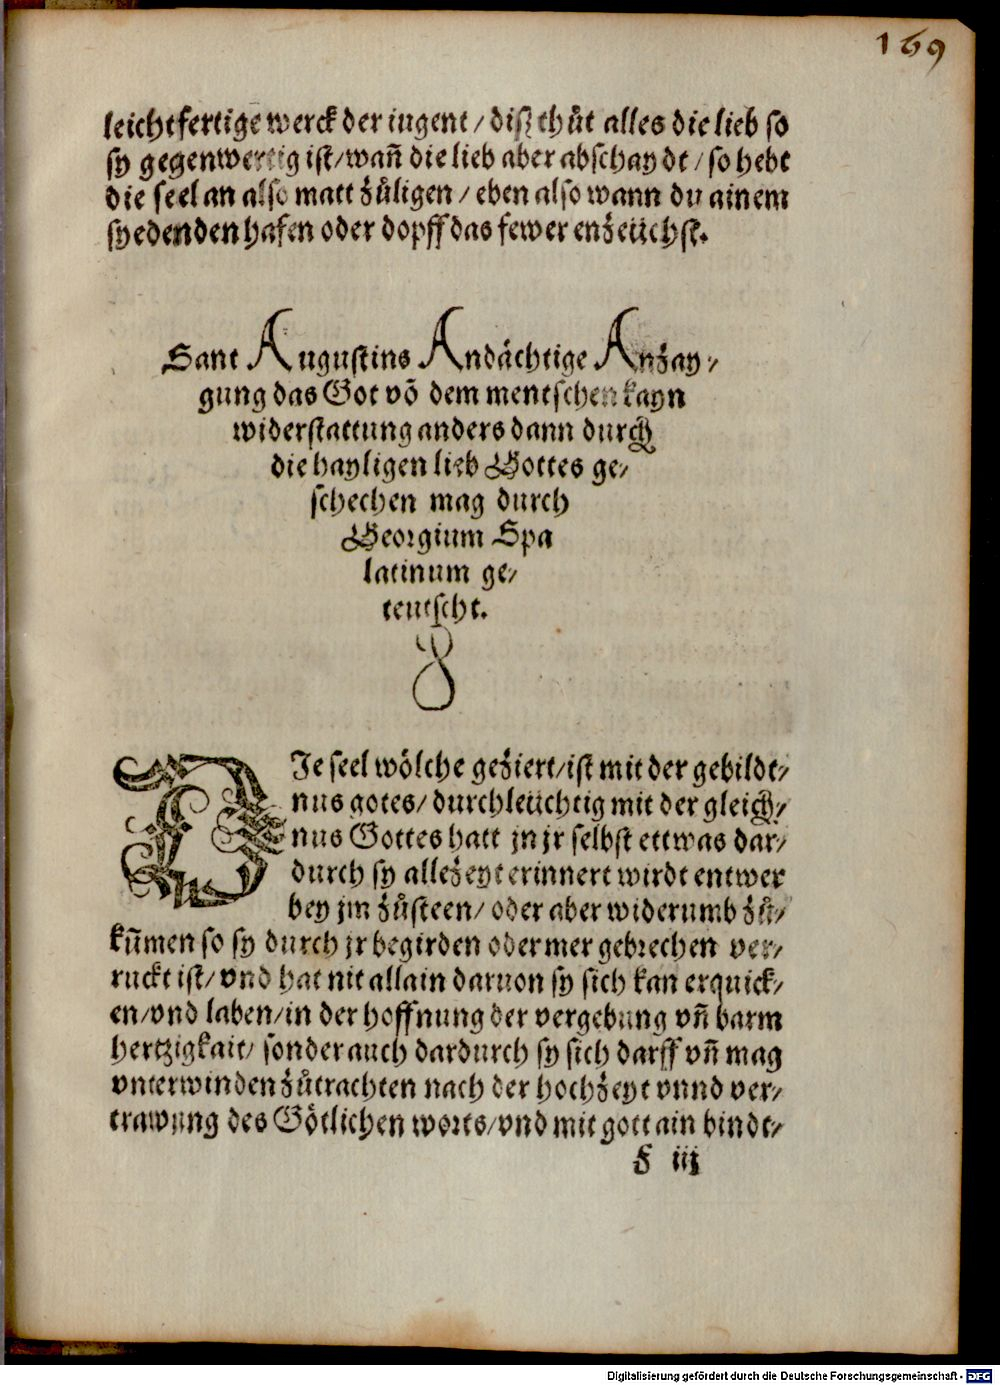 169
leichtfertige werck der iugent / diſz thůt alles die lieb ſo
ſy gegenwertig iſt / wañ die lieb aber abſchaydt / ſo hebt
die ſeel an alſo matt zůligen / eben alſo wann du ainem
ſyedenden hafen oder dopff das fewer enzeüchſt.
Sant Auguſtins Andächtige Anzay/
gung das Got võ dem mentſchen kayn
widerſtattung anders dann durch
die hayligen lieb Gottes ge/
ſchechen mag durch
Georgium Spa
latinum ge/
teutſcht.
DIe ſeel wölche geziert / iſt mit der gebildt/
nus gotes / durchleüchtig mit der gleich/
nus Gottes hatt jn jr ſelbſt ettwas dar/
durch ſy allezeyt erinnert wirdt entwer
bey jm zůſteen / oder aber widerumb zů/
kům̃en ſo ſy durch jr begirden oder mer gebrechen ver/
ruckt iſt / vnd hat nit allain daruon ſy ſich kan erquick/
en / vnd laben / in der hoffnung der vergebung vñ barm
hertzigkait / ſonder auch dardurch ſy ſich darff vñ mag
vnterwinden zůtrachten nach der hochzeyt vnnd ver/
trawung des Götlichen worts / vnd mit gott ain bindt/
F iij
Digitalisierung gefördert durch die Deutsche Forschungsgemeinschaft - DFG